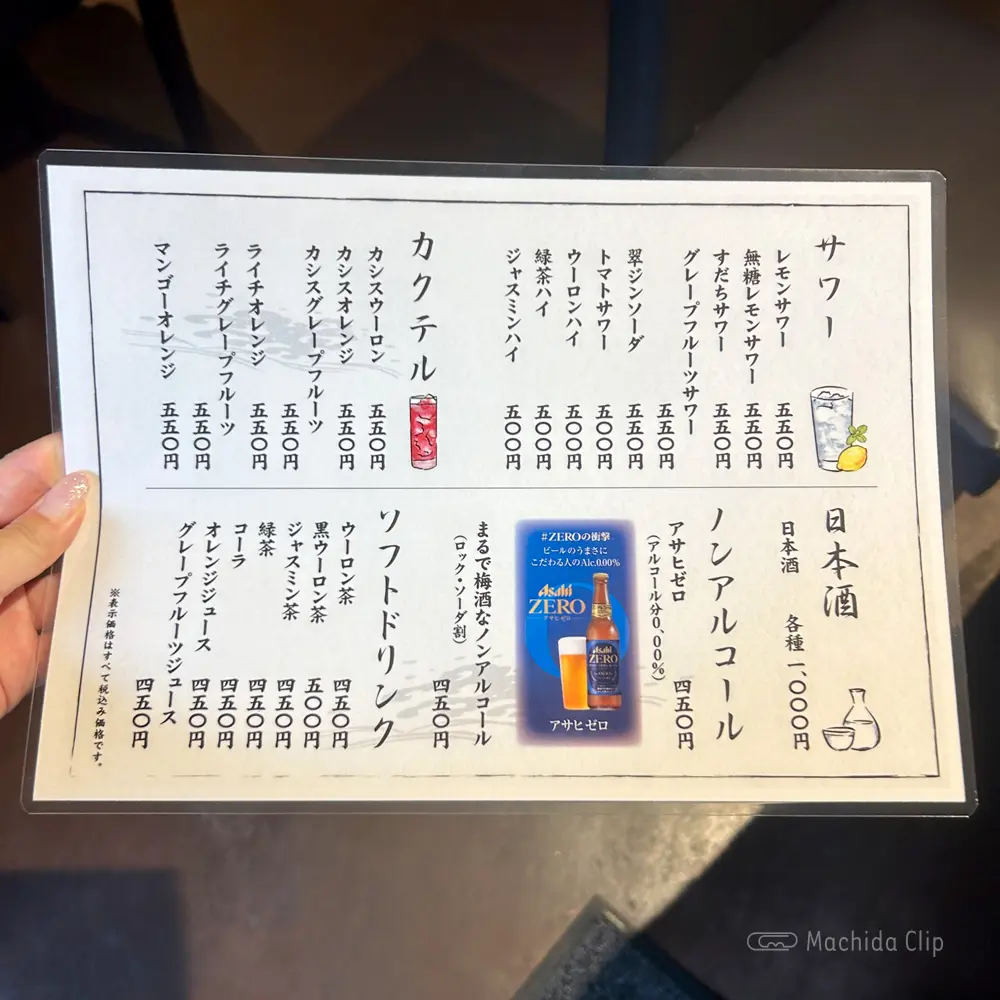 サワー
レモンサワー 五五〇円
無糖レモンサワー 五五〇円
すだちサワー 五五〇円
グレープフルーツサワー 五五〇円
翠ジンソーダ 五五〇円
トマトサワー 五五〇円
ウーロンハイ 五〇〇円
緑茶ハイ 五〇〇円
ジャスミンハイ 五〇〇円
カクテル
カシスウーロン 五五〇円
カシスオレンジ 五五〇円
カシスグレープフルーツ 五五〇円
ライチオレンジ 五五〇円
ライチグレープフルーツ 五五〇円
マンゴーオレンジ 五五〇円
日本酒
日本酒 各種 一、〇〇〇円
ノンアルコール
アサヒゼロ
(アルコール分0.00%) 四五〇円
#ZEROの衝撃
ビールのうまさに
こだわる人のAlc.0.00%
Asahi
ZERO
アサヒゼロ
Asahi
ZERO
アサヒゼロ
まるで梅酒なノンアルコール
(ロック・ソーダ割) 四五〇円
ソフトドリンク
ウーロン茶 四五〇円
黒ウーロン茶 五〇〇円
ジャスミン茶 四五〇円
緑茶 四五〇円
コーラ 四五〇円
オレンジジュース 四五〇円
グレープフルーツジュース 四五〇円
※表示価格はすべて税込み価格です。
Machida Clip